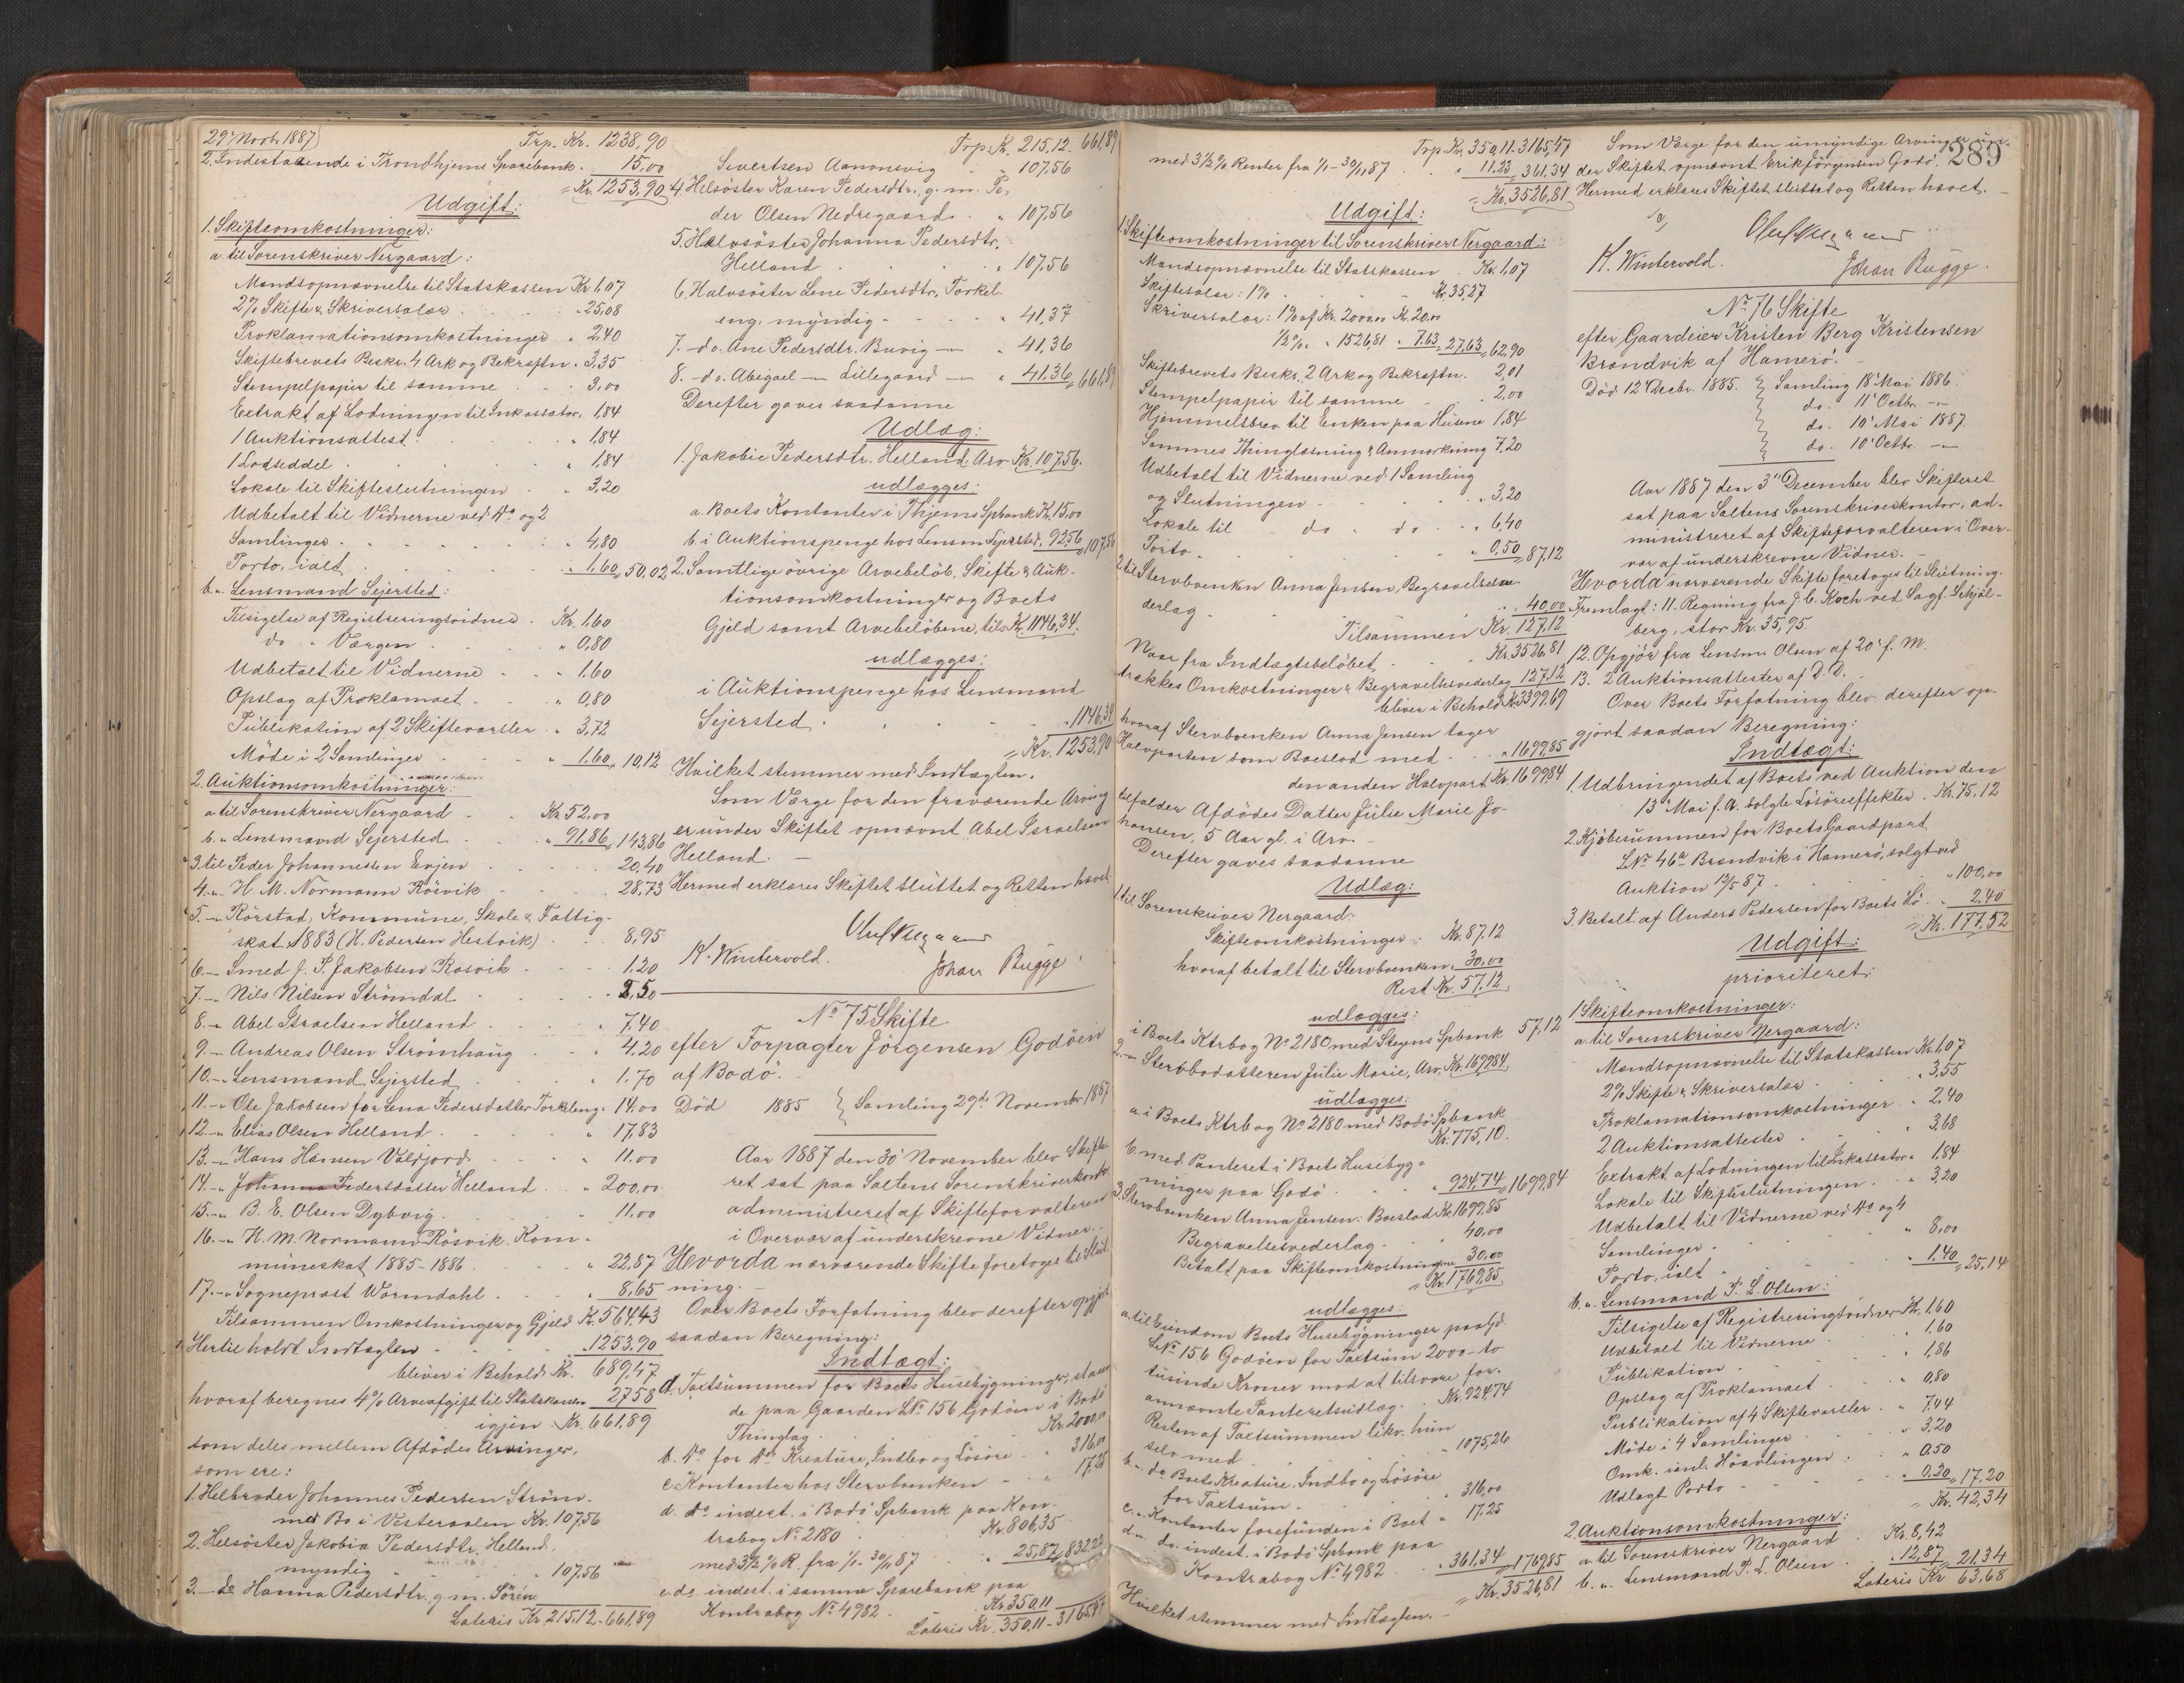 29' Novb. 1887) Trp. Kr. 1238,90
2. Indestaaende i Trondhjems Sparebank " 15,00
= Kr. 1253,90
Udgift:
1. Skifteomkostninger:
a. til Sorenskriver Nergaard:
Mandsopnævnelse til Statskassen Kr 1,07
2% Skifte & Skriversalær " 25,08
Proklamationsomkostninger " 2,40
Skiftebrevets Beskr. 4 Ark og Bekræftn. " 3,35
Stempelpapir til samme " 3,00
Extrakt af Lodningen til Inkassator. 1,84
1 Auktionsattest " 1,84
1 Lodseddel " 1,84
Lokale til Skifteslutningen " 3,20
Udbetalt til Vidnerne ved 1ste og 2
Samlinger " 4,80
Porto, ialt " 1,60 = 50,02
b. " Lensmand Sejersted:
Tilsigelse af Registreringsvidner Kr. 1,60
do. " Værgen " 0,80
Udbetalt til Vidnerne " 1,60
Opslag af Proklamaet " 0,80
Publikation af 2 Skiftevarsler " 3,72
Möde i 2 Samlinger " 1,60 = 10,12
2. Auktionsomkostninger:
a til Sorenskriver Nergaard Kr. 52,00
b. " Lensmand Sejersted " 91,86 = 143,86
3. til Peder Johannessen Evjen 20,40
4. " H. M. Normann Rörvik 28,73
5. " Rörstad Kommune, Skole & Fattig-
skat 1883 (H. Pedersen Hestvik) 8,95
6. " Smed J. P. Jakobsen Rosvik 1,20
7. " Nils Nilsen Strömdal 2,50
8. " Abel Israelsen Helland " 7,40
9. " Andreas Olsen Strömhaug " 4,20
10. " Lensmand Sejersted " 1,70
11. " Ole Jakobsen for Lena Pedersdatter Torkleng. 14,00
12. " Elias Olsen Helland " 17,83
13. " Hans Hansen Valdjord " 11,00
14. " Johanna Pedersdatter Helland " 200,00
15. " B. E. Olsen Dybvig " 11,00
16. " H. M. Normann Rösvik. Kom-
muneskat 1885-1886 " 22,87
17. " Sogneprest Wormdahl " 8,65
Tilsammen Omkostninger og Gjeld Kr. 564,43
Hertil holdt Indtægten " 1253,90
bliver i Behold Kr. 689,47
hvoraf beregnes 4% Arveafgift til Statskassen 27,58
igjen Kr. 661,89
som deles mellem Afdödes Arvinger,
som ere:
1. Helbroder Johannes Pedersen Ström-
med Bo i Vesteraalen Kr. 107,56
2. Helsöster Jakobia Pedersdtr. Helland.
myndig " 107,56
3. " do Hanna Pedersdtr. g. m. Sören
Lateris Kr. 215,12 - 661,89
Trp. Kr. 215,12 - 661,89
Sivertsen Aamonsvig " 107,56
4. Helsöster Karen Pedersdtr., g. m. Pe-
der Olsen Nedregaard " 107,56
5. Halvsöster Johanna Pedersdtr.
Helland " 107,56
6. Halvsöster Lene Pedersdtr. Torkel-
eng, myndig " 41,37
7. " do. Ane Pedersdtr. Buvig " 41,36
8. " do. Abigael " Lillegaard " 41,36 = 661,89
Derefter gaves saadanne
Udlæg:
1. Jakobie Pedersdtr. Helland Arv. Kr. 107,56.
udlægges:
a. Boets Kontanter i Thjems Spbank Kr. 15,00
b. i Auktionspenge hos Lensm Sejersted. 92,56 = 107,56
2. Samtlige övrige Arvebelöb, Skifte & Auk-
tionsomkostninger og Boets
Gjeld samt Arvebelöbene, tils Kr. 1146,34.
udlægges:
i Auktionspenge hos Lensmand
Sejersted " 1146,34
= Kr. 1253,90
Hvilket stemmer med Indtægten.
Som Værge for den fraværende Arving
er under Skiftet opnævnt Abel Israelsen
Helland. —
Hermed erklæres Skiftet sluttet og Retten hævet.
K. Wintervold.
Johan Bugge.
No 75 Skifte
efter Forpagter Jörgensen Godöen
af Bodö.
Död 1885 } Samling 29de November 1887
Aar 1887 den 30' November blev Skifte-
ret sat paa Saltens Sorenskriverkontor
administreret af Skifteforvalteren
i Overvær af underskrevne Vidner.
Hvorda nærværende Skifte foretoges til Slut-
ning. —
Over Boets Forfatning blev derefter opgjort
saadan Beregning:
Indtægt:
a. Taxtsummen for Boets Husebygninger, staaen-
de paa Gaarden LNo 156 Godöen i Bodö
Thinglag Kr. 2000,00
b. do for do Kreature, Indbo og Lösöre " 316,00
c. Kontanter hos Stervboenken " 17,25
d. do indest. i Bodö Spbank paa Kon-
trabog No 2180 Kr. 806,35
med 3½% R. fra 1/1 - 30/11 87 " 25,87 = 832,22
e. do. indest. i samme Sparebank paa
Kontrabog No 4982 Kr. 350,11
Lateris Kr. 350,11 - 3165,47
289
Trp. Kr. 350,11 - 3165,47
med 3½% Renter fra 1/1 - 30/11 87 " 11,23 = 361,34
= Kr. 3526,81
Udgift:
1. Skifteomkostninger til Sorenskriver Nergaard:
Mandsopnævnelse til Statskassen Kr. 1,07
Skiftesalær: 1% Kr. 35,27
Skriversalær: 1% af Kr. 2000,00 Kr. 20,00
½% " " 1526,81 " 7,63 = 27,63 = 62,90
Skiftebrevets Beskr. 2 Ark og Bekræftn. 2,01
Stempelpapir til samme " 2,00
Hjemmelsbrev til Enken paa Husene 1,84
Sammes Thinglæsning & Anmærkning 7,20
Udbetalt til Vidnerne ved 1 Samling
og Slutningen " 3,20
Lokale til do do " 6,40
Porto " 0,50 = 87,12
2. til Stervboenken Anna Jensen, Begravelsesve-
derlag " 40,00
Tilsammen Kr. 127,12
Naar fra Indtægtsbelöbet Kr. 3526,81
trækkes Omkostninger & Begravelsesvederlag 127,12
bliver i Behold Kr. 3399,69
hvoraf Stervboenken Anna Jensen tager
Halvparten som Boeslod med " 1699,85
den anden Halvpart Kr. 1699,84
tilfalder Afdödes Datter Julie Marie Jo-
hansen, 5 Aar gl. i Arv. —
Derefter gaves saadanne
Udlæg:
1. til Sorenskriver Nergaard:
Skifteomkostninger Kr. 87,12
hvoraf betalt til Stervboenken " 30,00
Rest Kr. 57,12
udlægges:
i Boets Ktrbog No 2180 med Steyens Spbank 57,12
2. " Stervbodatteren Julie Marie, Arv. Kr. 1699,84
udlægges:
a i Boets Ktrbog No 2180 med Bodö Spbank
Kr. 775,10.
b. med Panteret i Boets Husebyg-
ninger paa Godö " 924,74 = 1699,84
3. Stervboenken Anna Jensen: Boeslod Kr. 1699,85
Begravelsesvederlag " 40,00
Betalt paa Skifteomkostningerne 30,00
= Kr. 1769,85
udlægges:
a. til Eiendom Boets Husebygninger paa Gd.
LNo 156 Godöen for Taxtsum 2000 - to
tusinde Kroner mod at tilsvare for-
annævnte Panteretsudlæg Kr. 924,74
Resten af Taxtsummen likv. hun
selv med " 1075,26
b. " do Boets Kreature, Indbo og Lösöre
for Taxtsum " 316,00
c. " Kontanter forefunden i Boet " 17,25
d. " do. indest. i Bodö Spbank paa
Kontrabog No 4982 " 361,34 = 1769,85
= Kr. 3526,81
Hvilket stemmer med Indtægten. —
Som Værge for den umyndige Arving er un-
der Skiftet opnævnt Erik Jörgensen Godö.
Hermed erklæres Skiftet sluttet og Retten hævet. —
K. Wintervold.
Johan Bugge.
No 76 Skifte
efter Gaardeier Kristen Berg Kristensen
Brændvik af Hamerö.
Död 12' Decbr. 1885. } Samling 18' Mai 1886.
do. 11' Octbr. "
do. 10' Mai 1887.
do. 10' Octbr. "
Aar 1887 den 3' December blev Skifteret
sat paa Saltens Sorenskriverkontor, ad-
ministreret af Skifteforvalteren i Over-
vær af underskrevne Vidner. —
Hvorda nærværende Skifte foretoges til Slutning.
Fremlagt: 11. Regning fra J. C. Koch ved Sagf. Schjöl-
berg, stor Kr. 35,95.
12. Opgjör fra Lensm. Olsen af 20' f. M.
13. 2 Auktionsattester af D. D.
Over Boets Forfatning blev derefter op-
gjort saadan Beregning:
Indtægt:
1. Udbringendet af Boets ved Auktion den
13' Mai f. A. solgte Lösöreeffekter Kr. 75,12
2. Kjöbesummen for Boets Gaardpart
LNo 46a Brændvik i Hamerö, solgt ved
Auktion 12/5 87 " 100,00
3. Betalt af Anders Pedersen for Boets Hö " 2,40
= Kr. 177,52
Udgift:
prioriteret:
1. Skifteomkostninger:
a. til Sorenskriver Nergaard:
Mandsopnævnelse til Statskassen Kr. 1,07
2% Skifte & Skriversalær " 3,55
Proklamationsomkostninger " 2,40
2 Auktionsattester " 3,68
Extrakt af Lodningen til Inkassator " 1,84
Lokale til Skifteslutningen " 3,20
Udbetalt til Vidnerne ved 1ste og 4
Samlinger " 8,00
Porto, ialt " 1,40 = 25,14
b. " Lensmand P. L. Olsen:
Tilsigelse af Registreringsvidner Kr. 1,60
Udbetalt til Vidnerne " 1,60
Publikation " 1,86
Opslag af Proklamaet " 0,80
Publikation af 4 Skiftevarsler " 7,44
Möde i 4 Samlinger " 3,20
Omk. " 0,50
Udlagt Porto " 0,20 = 17,20
= Kr. 42,34
2. Auktionsomkostninger:
a. til Sorenskriver Nergaard Kr. 8,42
b. " Lensmand P. L. Olsen " 12,87 = 21,34
Lateris Kr 63,68